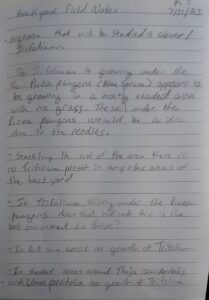 P. 1
Backyard Field Notes 7/21/23
- organism that will be studied is clover/
Trifolium
- The Trifolium is growing under the
the Picea pungens (Blue Spruce) appears to
be growing in a mostly shaded area
with no grass. The soil under the
Picea pungens would be acidic
due to the needles.
- Searching the rest of the area there is
no Trifolium present in any other areas of
the backyard
- Is Trifolium thriving under the Picea
pungens does that indicate this is the
best enviroment to thrive?
- In full sun areas no growth of Trifolium
- In shaded areas around Thuja occidentalis
and no growth of Trifolium